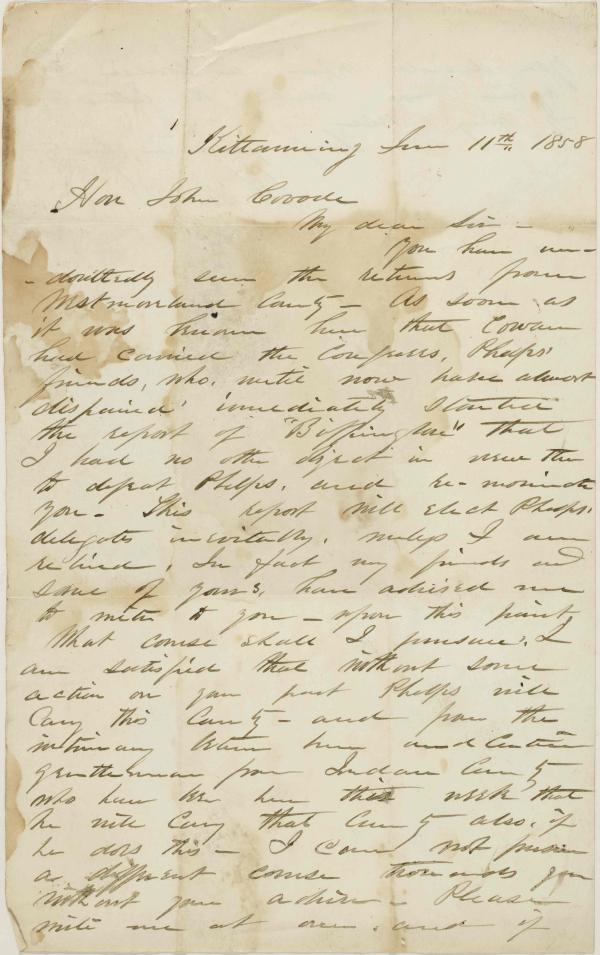 Kittanning June 11th 1858
Hon John Covode
My dear Sir -
You have un-
-doubtedly seen the returns from
Westmoreland County - As soon as
it was known here that Cowan
had carried the Congress, Phelps'
friends, who, until now have almost
dispaired' immediately started
the report of "Biffington" that
I had no other object in view then
to defeat Phelps. and re-nominate
you - This report will elect Phelps'
delegates inevitably, unless I am
relieved. In fact my friends and
some of yours, have advised me
to write to you - upon this point
What course shall I pursue. I
am satisfied that without some
action on your part Phelps will
Carry this County - and from the
between here and Certain
gentlemen from Indiana County
who have been here this week that
he will Carry that County also. if
he does this - I can not pursue
a different course towards you
without your advice - Please
write me at once. and if